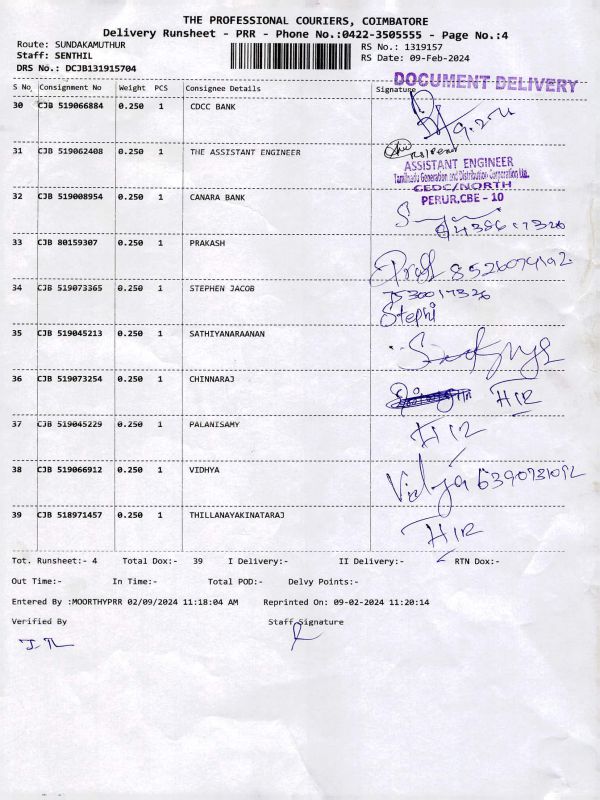 THE PROFESSIONAL COURIERS, COIMBATORE
Delivery Runsheet - PRR - Phone No.:0422-3505555 - Page No.:4
Route: SUNDAKAMUTHUR RS No.: 1319157
Staff: SENTHIL RS Date: 09-Feb-2024
DRS No.: DCJB131915704
DOCUMENT DELIVERY
S No Consignment No Weight PCS Consignee Details Signature
30 CJB 519066884 0.250 1 CDCC BANK
31 CJB 519062408 0.250 1 THE ASSISTANT ENGINEER
ASSISTANT ENGINEER
Tamilnadu Generation and Distribution Corporation Ltd.
CEDC/NORTH
PERUR,CBE - 10
32 CJB 519008954 0.250 1 CANARA BANK
33 CJB 80159307 0.250 1 PRAKASH
34 CJB 519073365 0.250 1 STEPHEN JACOB
Stephi
35 CJB 519045213 0.250 1 SATHIYANARAANAN
36 CJB 519073254 0.250 1 CHINNARAJ
37 CJB 519045229 0.250 1 PALANISAMY
38 CJB 519066912 0.250 1 VIDHYA Vidya
39 CJB 518971457 0.250 1 THILLANAYAKINATARAJ
Tot. Runsheet:- 4 Total Dox:- 39 I Delivery:- II Delivery:- RTN Dox:-
Out Time:- In Time:- Total POD:- Delvy Points:-
Entered By :MOORTHYPRR 02/09/2024 11:18:04 AM Reprinted On: 09-02-2024 11:20:14
Verified By Staff Signature